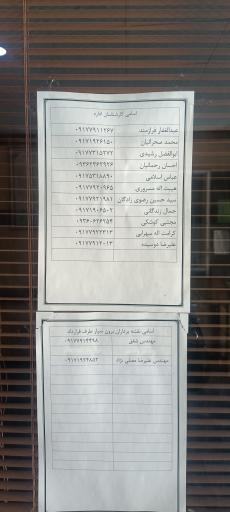 اسامی کارشناسان اداره
عبدالغفار فرازمند ۰۹۱۷۷۹۱۱۲۶۷
محمد صحرائیان ۰۹۱۷۱۹۲۶۱۵۰
ابوالفضل رشیدی ۰۹۱۷۷۳۱۵۳۷۲
احسان رحمانیان
عباس اسلامی ۰۹۱۷۵۳۱۸۸۹۰
هیبت اله مسروری ۰۹۱۷۷۹۲۰۹۶۵
سید حسین رضوی زادگان ۰۹۱۷۷۹۲۱۹۸۲
جمال زندگانی ۰۹۱۷۱۹۰۶۵۰۲
مجتبی کوشکی ۰۹۳۶۰۶۲۶۲۵۴
کرامت اله سهرابی ۰۹۱۷۷۹۲۲۳۱۳
علیرضا دوسینده ۰۹۱۷۷۹۱۲۰۱۳
اسامی نقشه برداران برون سپار طرف قرارداد
مهندس شفق ۰۹۱۷۷۹۱۴۴۹۸
مهندس علیرضا مصلی نژاد ۰۹۱۷۱۹۲۴۸۵۳